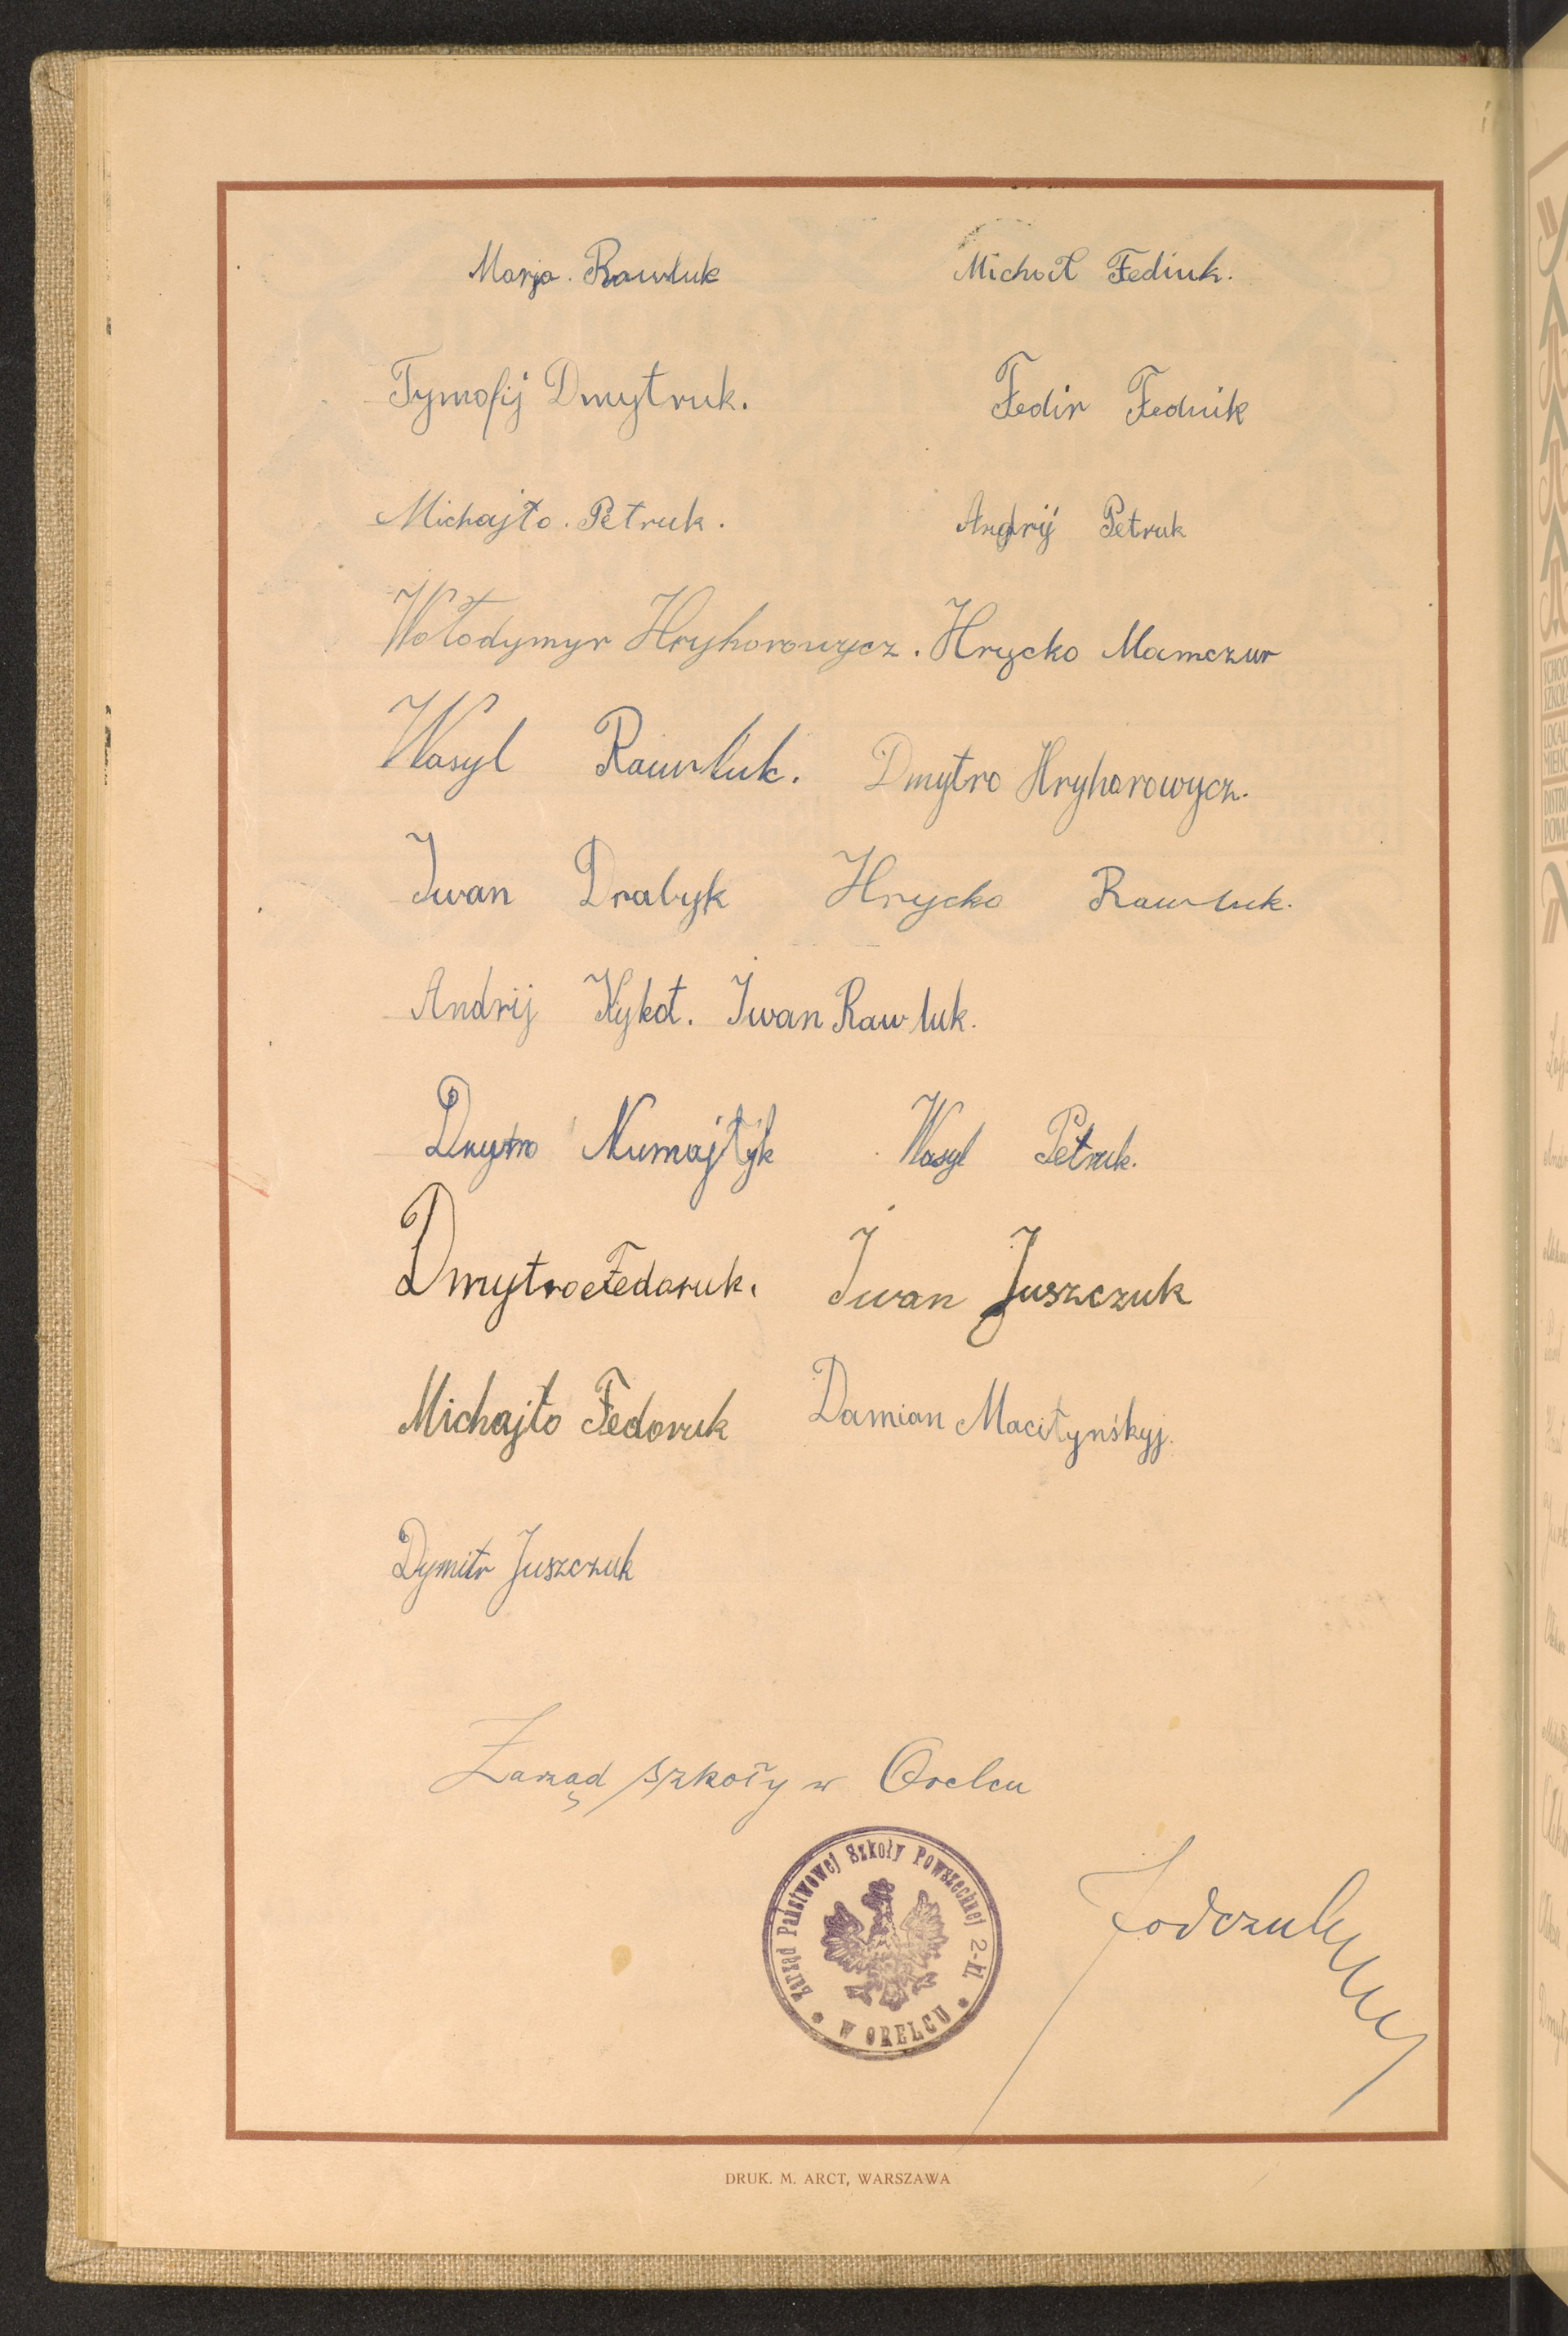 Marja. Rawluk Michał Fediuk.
Tymofij Dmytruk. Fedir Fediuk
Michajło. Petruk. Andrij Petruk
Wołodymyr Hryhorowycz. Hrycko Mamczur
Wasyl Rawluk. Dmytro Hryhorowycz.
Iwan Drabyk Hrycko Rawluk.
Andrij Kykot. Iwan Rawluk.
Dmytro Numajłyk Wasyl Petruk.
Dmytro Fedoruk. Iwan Juszczuk
Michajło Fedoruk Damian Maciłynśkyj.
Dymitr Juszczuk
Zarząd szkoły w Orelcu
Zarząd Państwowej Szkoły Powszechnej 2-kl.
W ORELCU
DRUK. M. ARCT, WARSZAWA